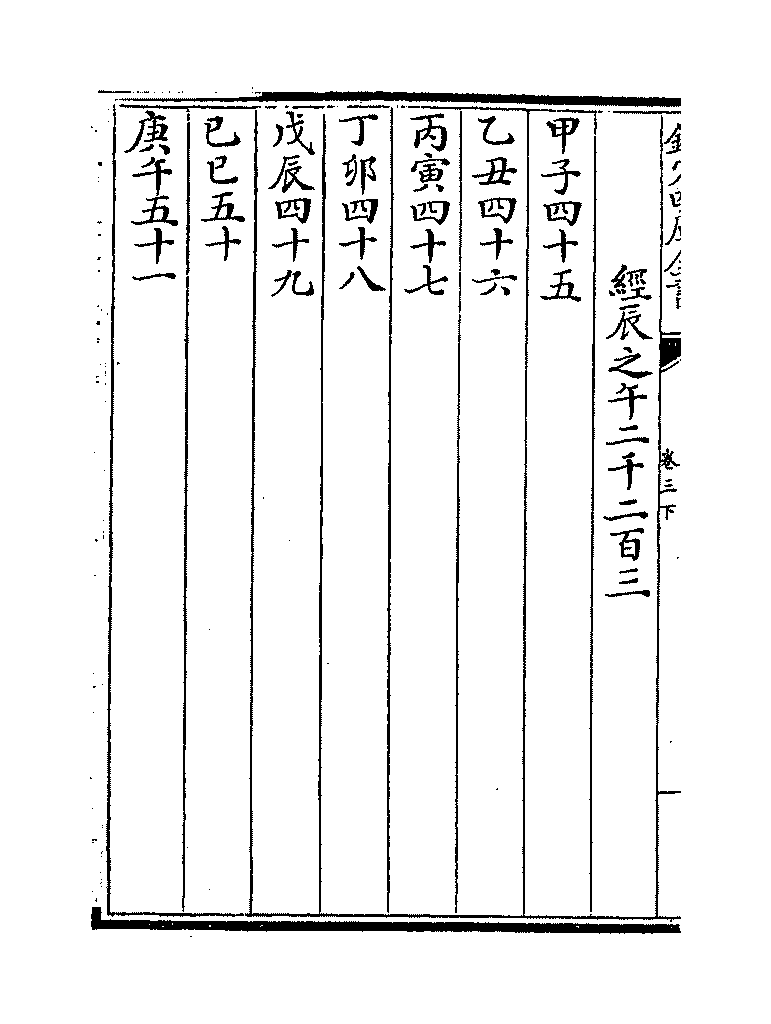 欽定四庫全書
卷三下
經辰之午二千二百三
甲子四十五
乙丑四十六
丙寅四十七
丁卯四十八
戊辰四十九
己巳五十
庚午五十一